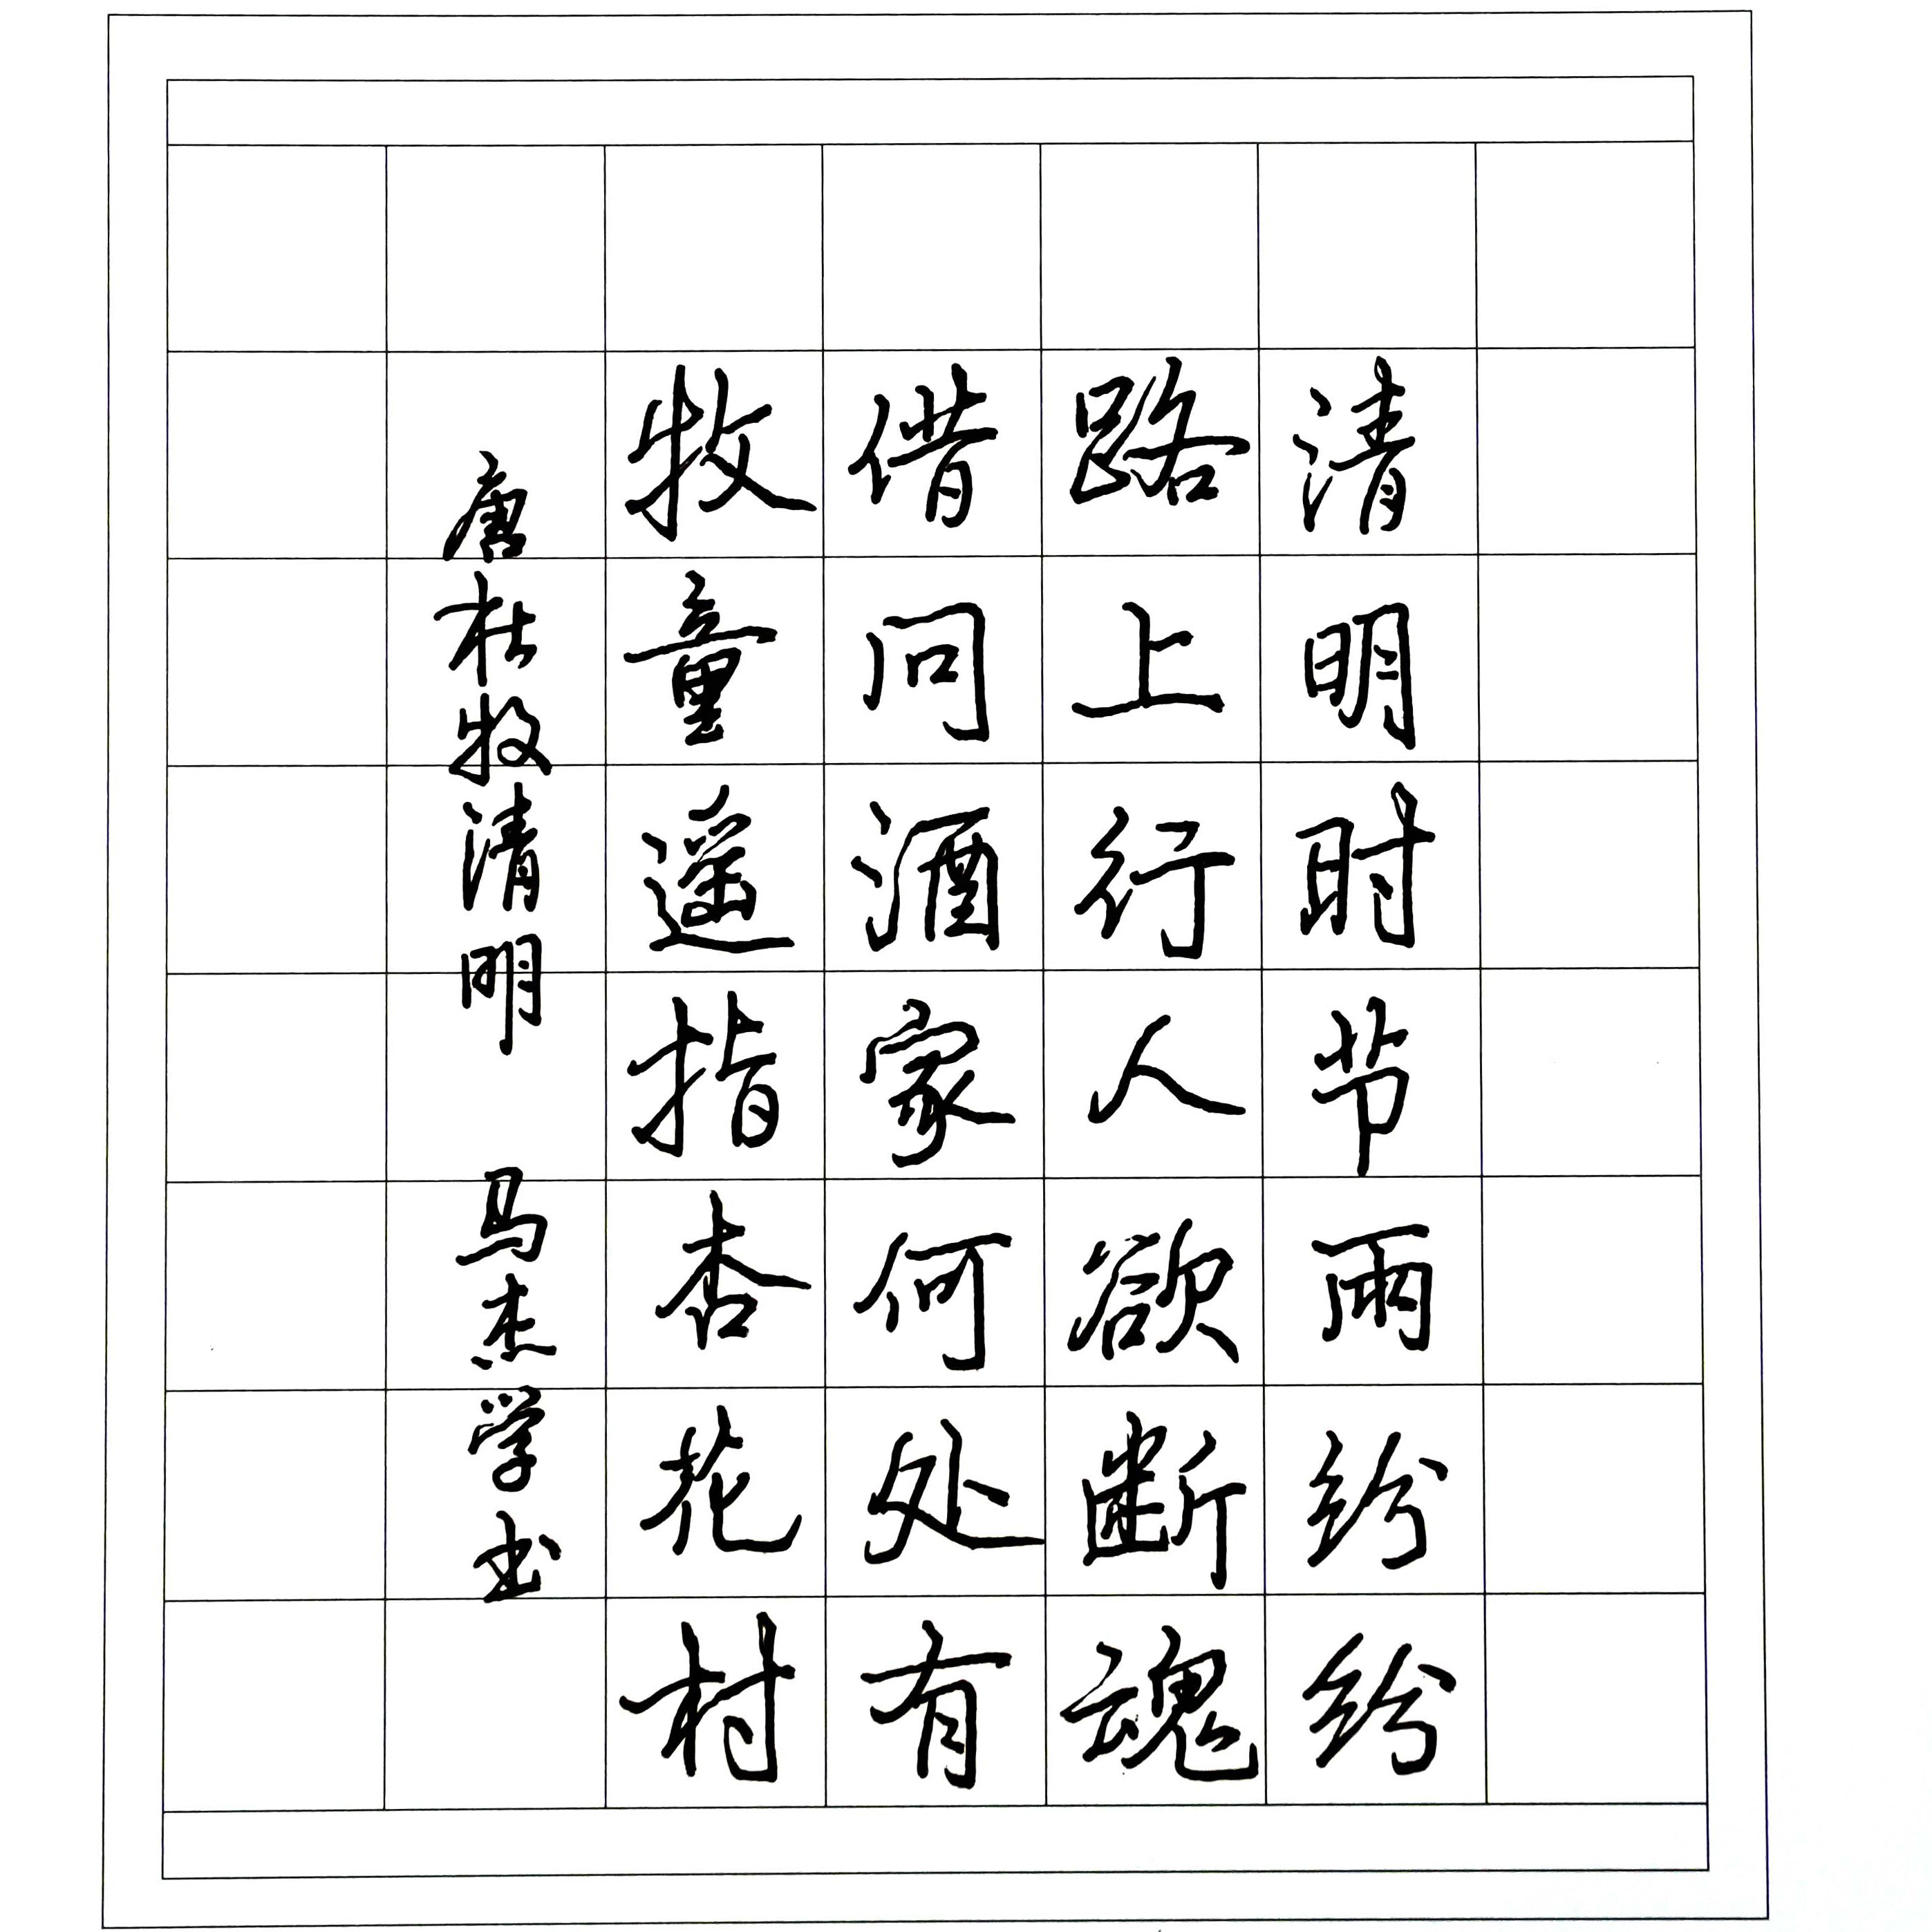 清明时节雨纷纷
路上行人欲断魂
借问酒家何处有
牧童遥指杏花村
唐杜牧清明 马杰学书